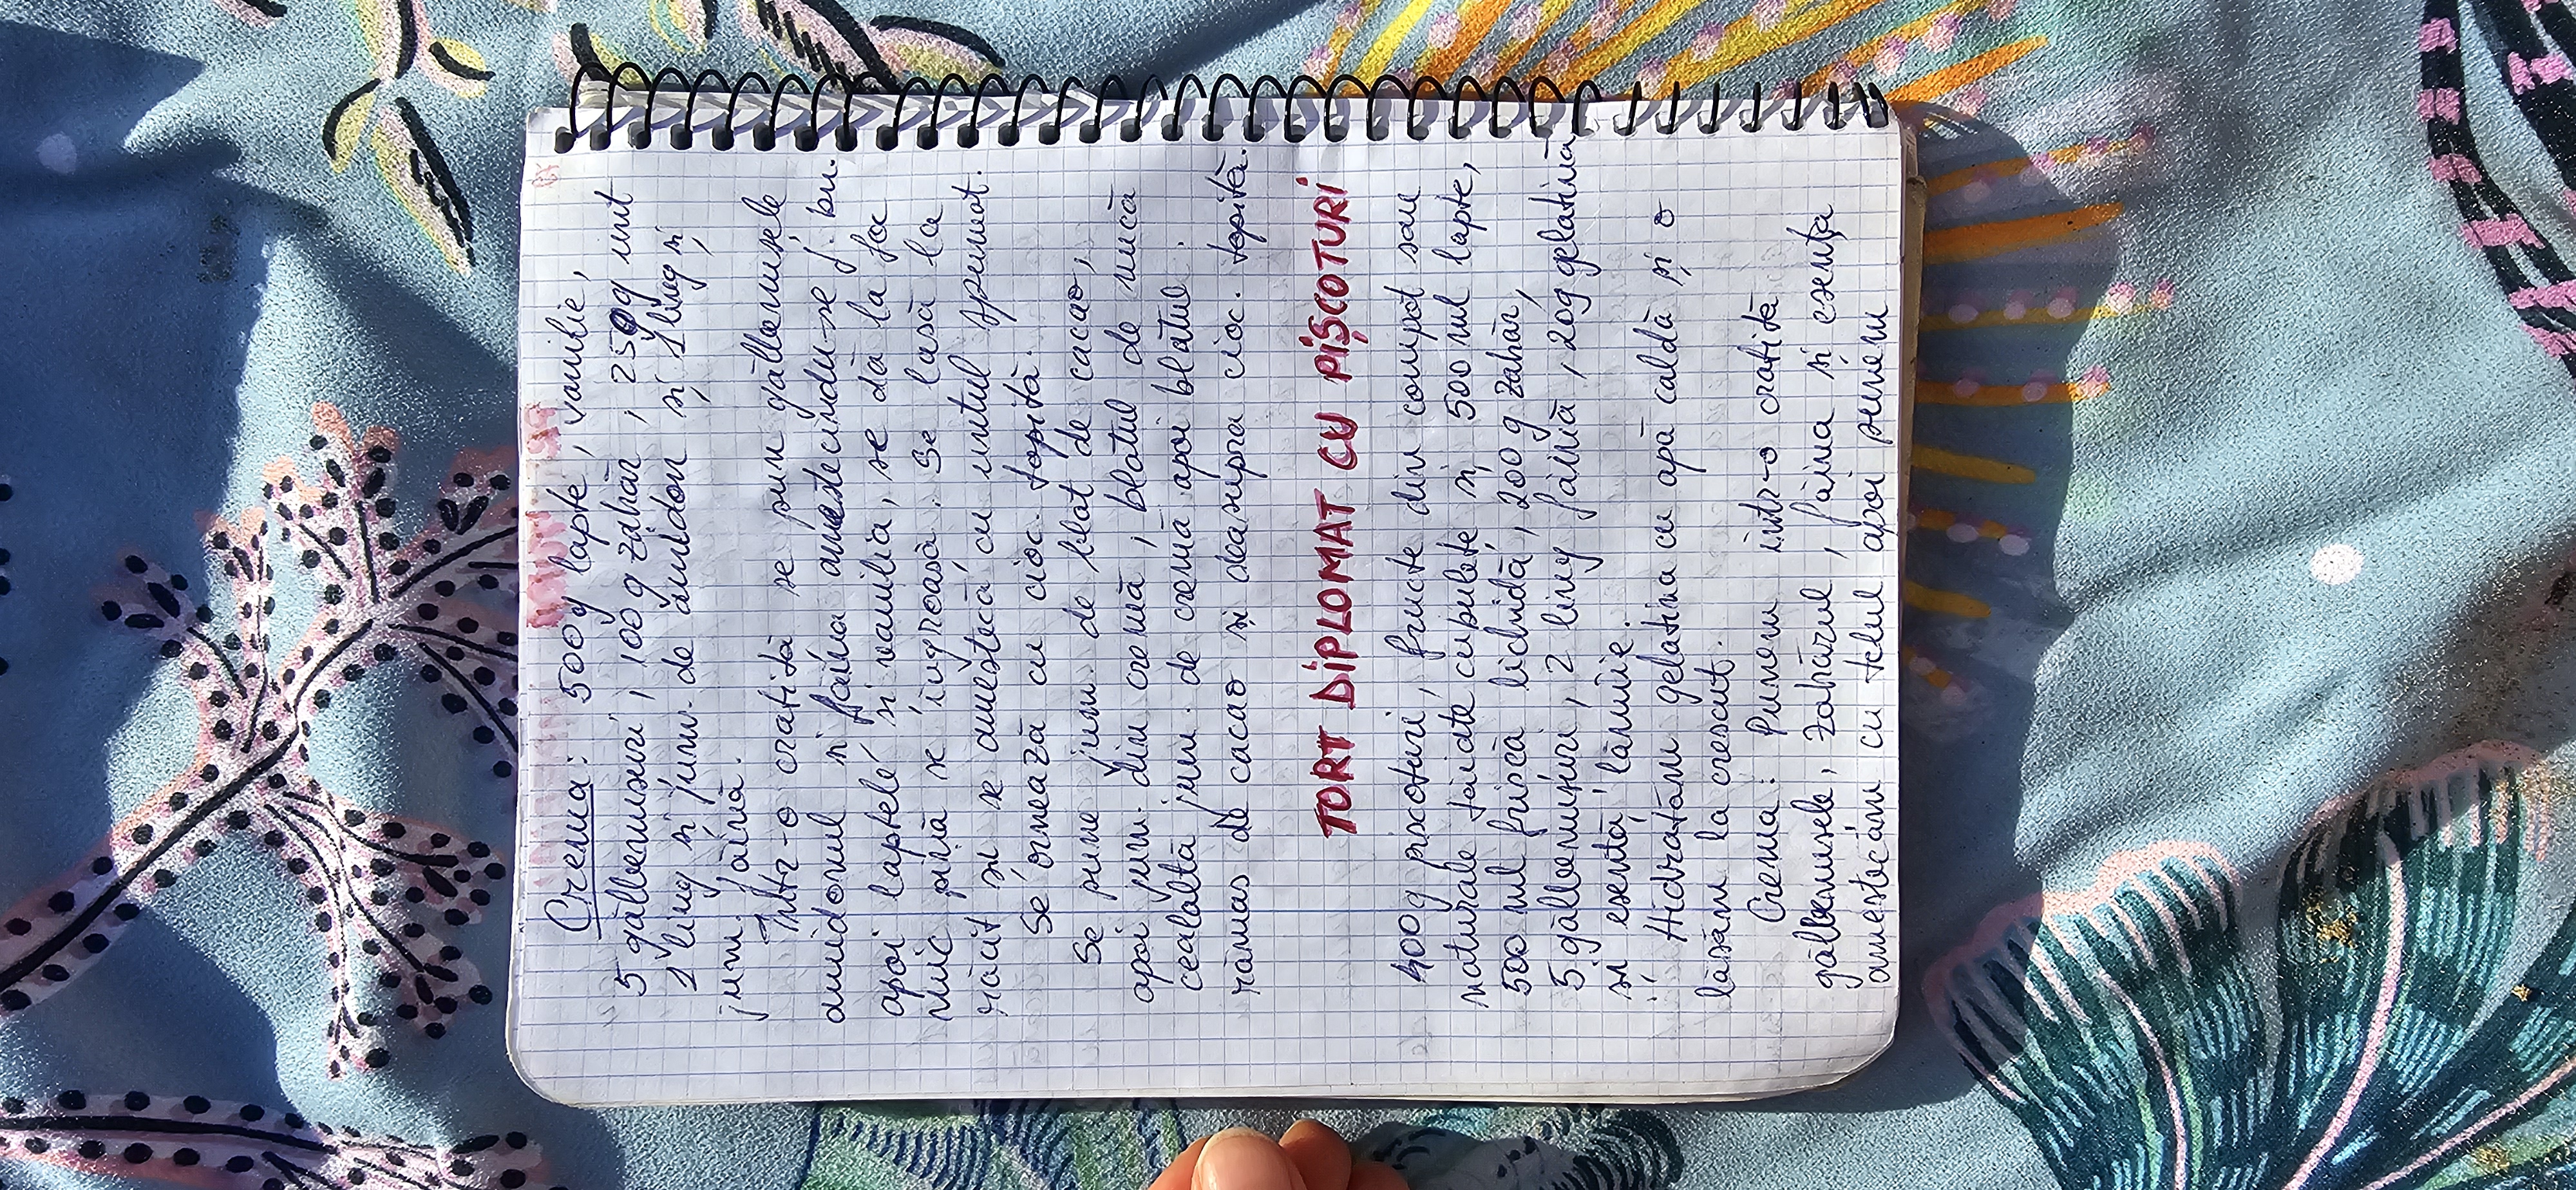 Crema: 500g lapte, vanilie,
5 gălbenușuri, 100g zahăr, 250g unt
1 ling și jum. de amidon și 1 ling și
jum. făină.
Într-o cratiță se pun gălbenușele
amidonul și făina amestecîndu-se f. bn.
apoi laptele și vanilia, se dă la foc
mic pînă se îngroașă. Se lasă la
răcit și se amestecă cu untul spumat.
Se ornează cu cioc. topită.
Se pune jum. de blat de cacao,
apoi jum. din cremă, blatul de nucă
cealaltă jum. de cremă apoi blatul
rămas de cacao și deasupra cioc. topită.
TORT DIPLOMAT CU PIȘCOTURI
400g pișcoturi, fructe din compot sau
naturale tăiate cubulețe și 500 ml lapte,
500 ml frișcă lichidă, 200g zahăr,
5 gălbenușuri, 2 ling făină, 20g gelatină
și esență lămîie.
Hidratăm gelatina cu apă caldă și o
lăsăm la crescut.
Crema: Punem într-o cratiță
gălbenușele, zahărul, făina și esența
amestecăm cu telul apoi punem